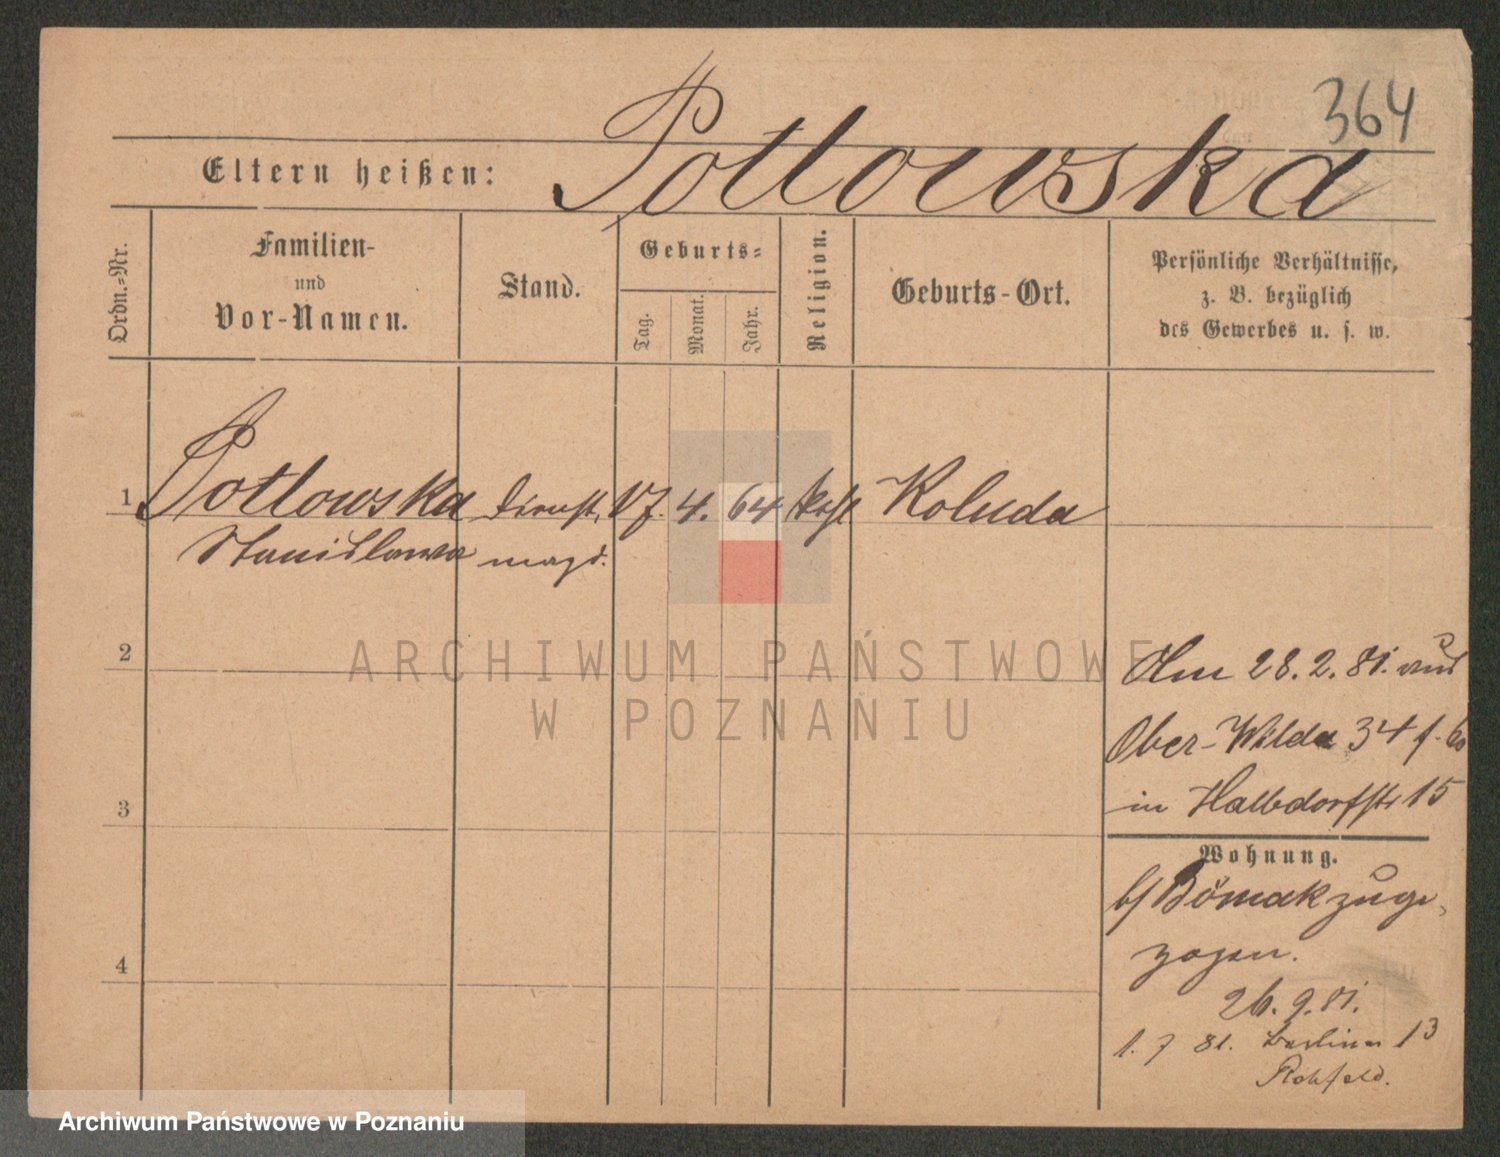 364
Eltern heißen: Potlowska
Ordn.-Nr.
Familien-
und
Vor-Namen.
Stand.
Geburts-
Tag.
Monat.
Jahr.
Religion.
Geburts-Ort.
Persönliche Verhältnisse,
z. B. bezüglich
des Gewerbes u. s. w.
1 Potlowska Dienst, 17. 4. 64 kath Koluda
Stanislawa magd.
2
3
4
Am 28.2.81. aus
Ober-Wilda 34
in Halbdorfstr 15
Wohnung.
b/ Bömak zuge,
zogen.
26. 9. 81.
1. 7 81. Berliner 13
Rohfeld.
ARCHIWUM PAŃSTWOWE
W POZNANIU
Archiwum Państwowe w Poznaniu